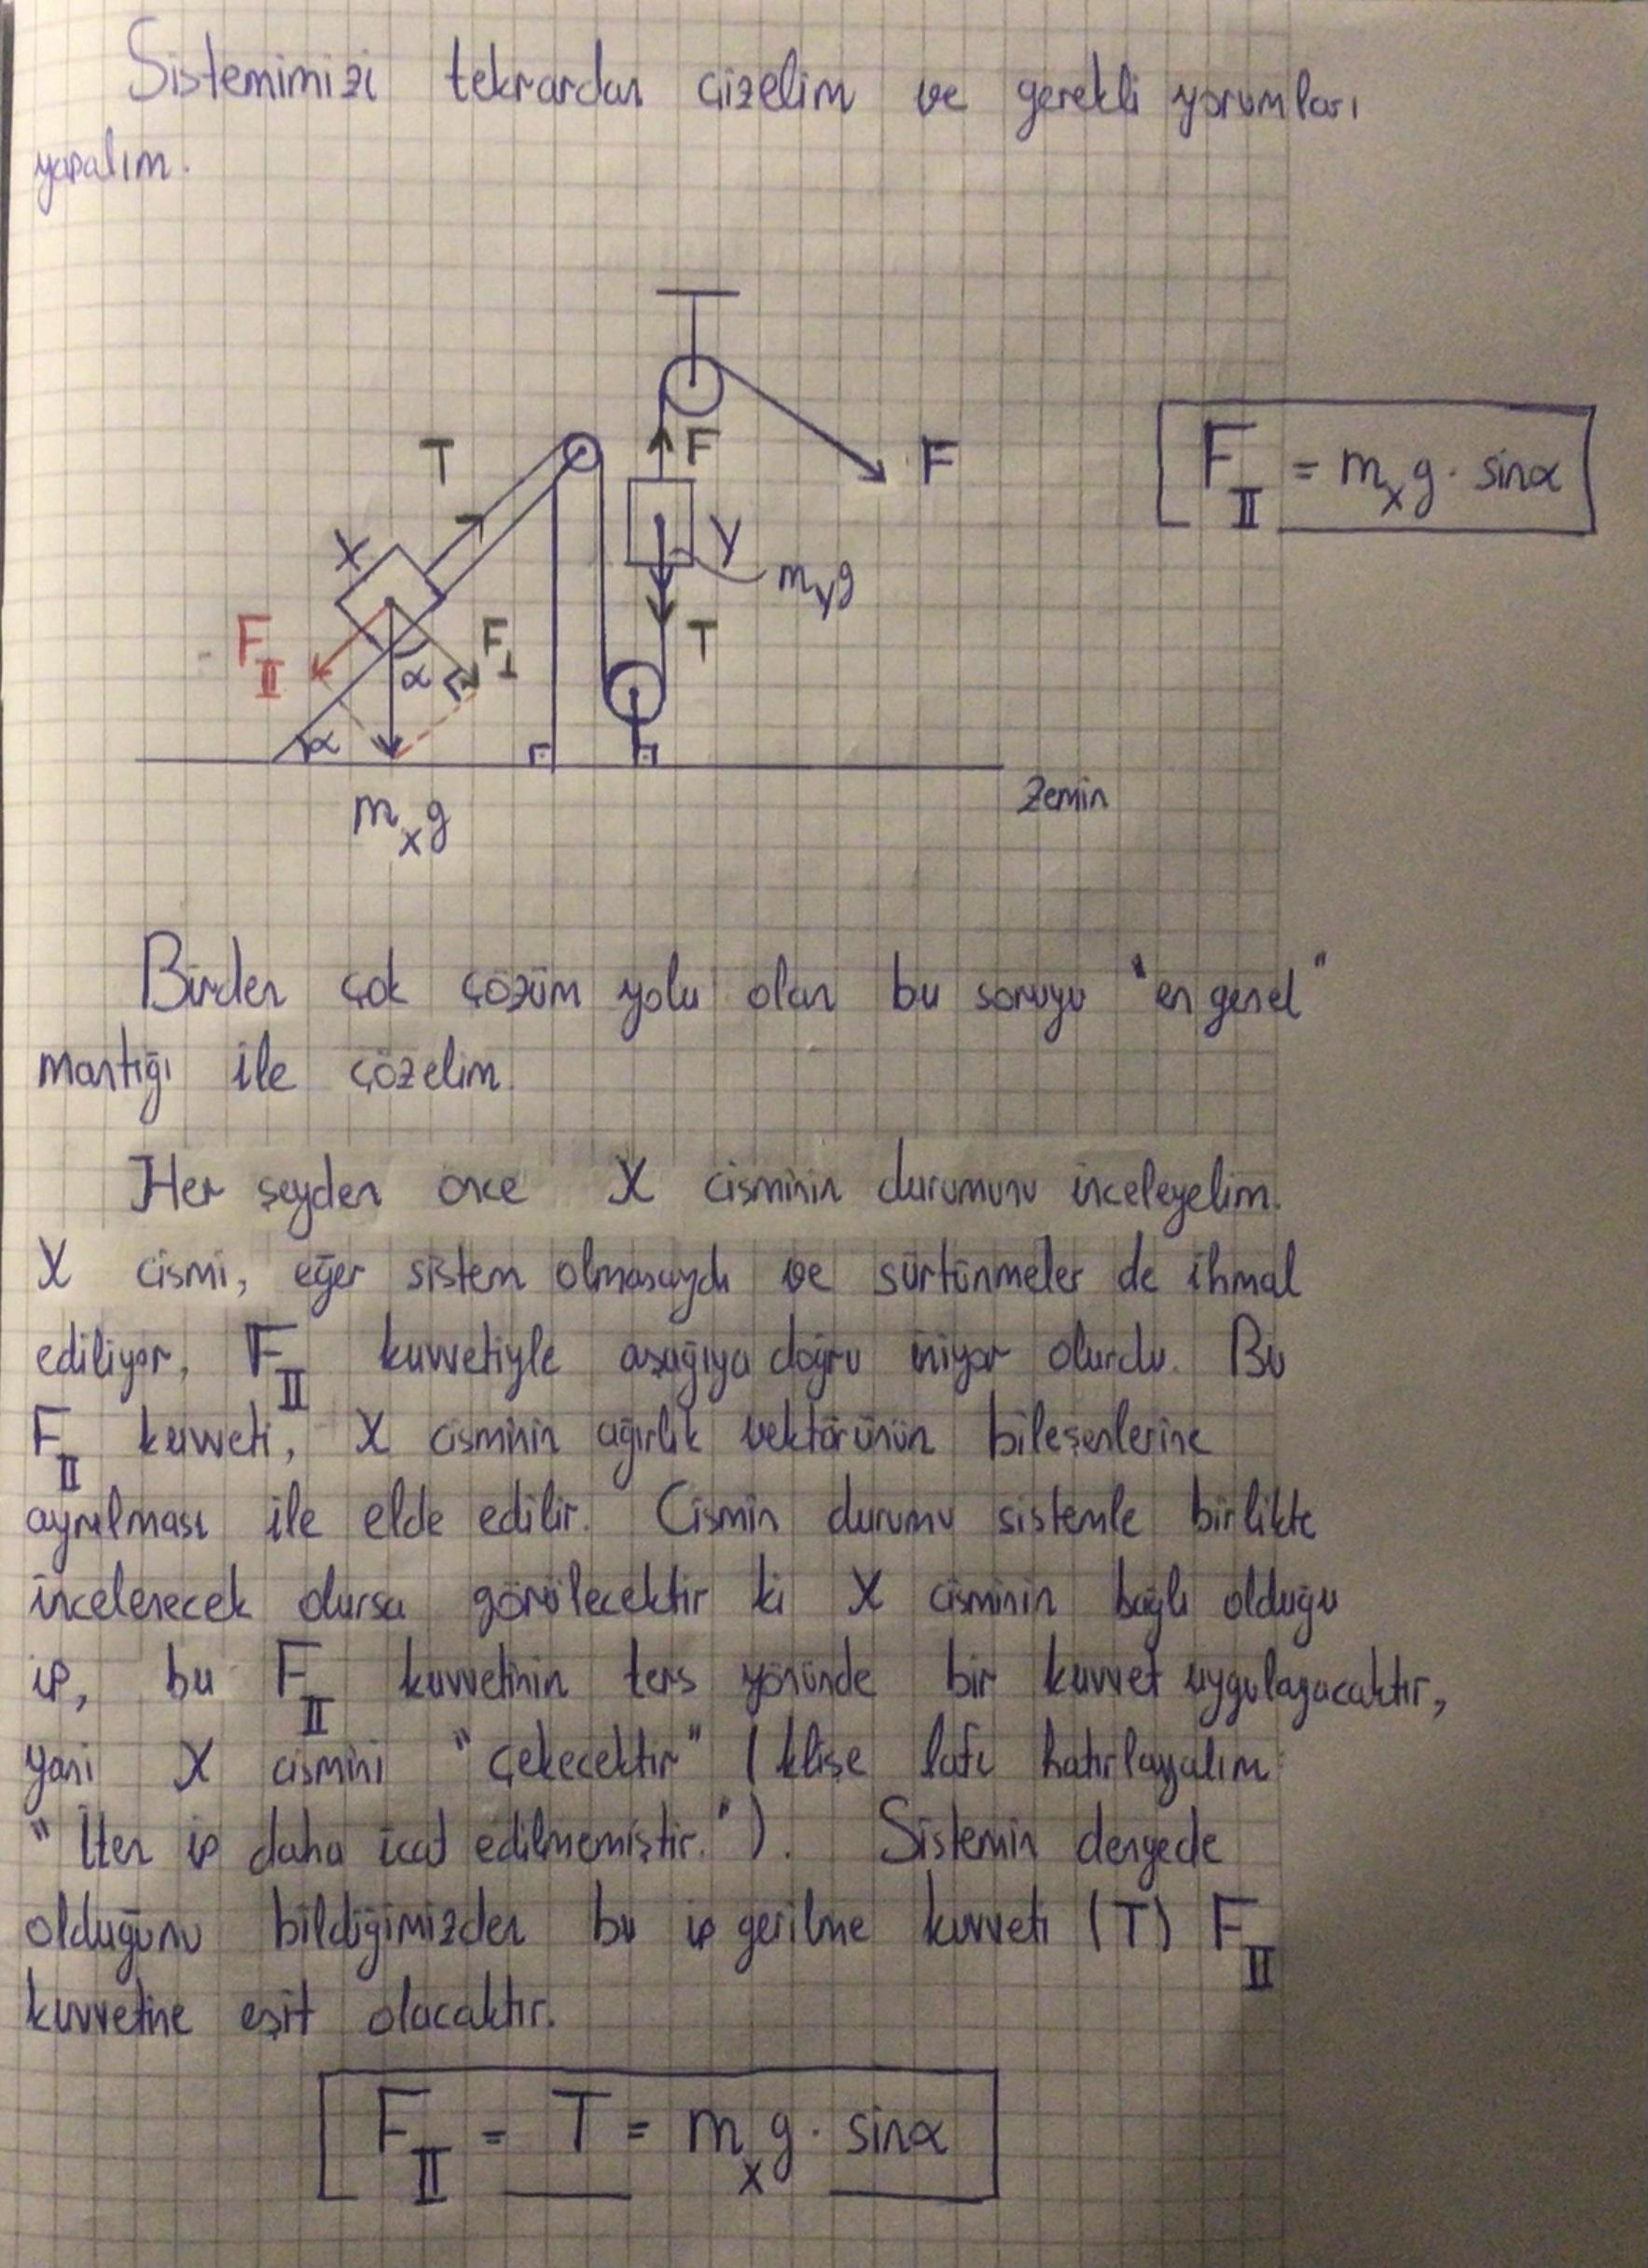 Sistemimizi tekrardan çizelim ve gerekli yorumları
yapalım.
T
F
F
F∥ = mₓg · sinα
X
y
mᵧg
F∥
F⊥
T
α
α
Zemin
mₓg
Birden çok çözüm yolu olan bu soruyu "en genel"
mantığı ile çözelim.
Her şeyden önce X cisminin durumunu inceleyelim.
X cismi, eğer sistem olmasaydı ve sürtünmeler de ihmal
ediliyor, F∥ kuvvetiyle aşağıya doğru iniyor olurdu. Bu
F∥ kuvveti, X cisminin ağırlık vektörünün bileşenlerine
ayrılması ile elde edilir. Cismin durumu sistemle birlikte
incelenecek olursa görülecektir ki X cisminin bağlı olduğu
ip, bu F∥ kuvvetinin ters yönünde bir kuvvet uygulayacaktır,
yani X cismini "çekecektir" (klişe lafı hatırlayalım:
"İten ip daha icat edilmemiştir."). Sistemin dengede
olduğunu bildiğimizden bu ip gerilme kuvveti (T) F∥
kuvvetine eşit olacaktır.
F∥ = T = mₓg · sinα